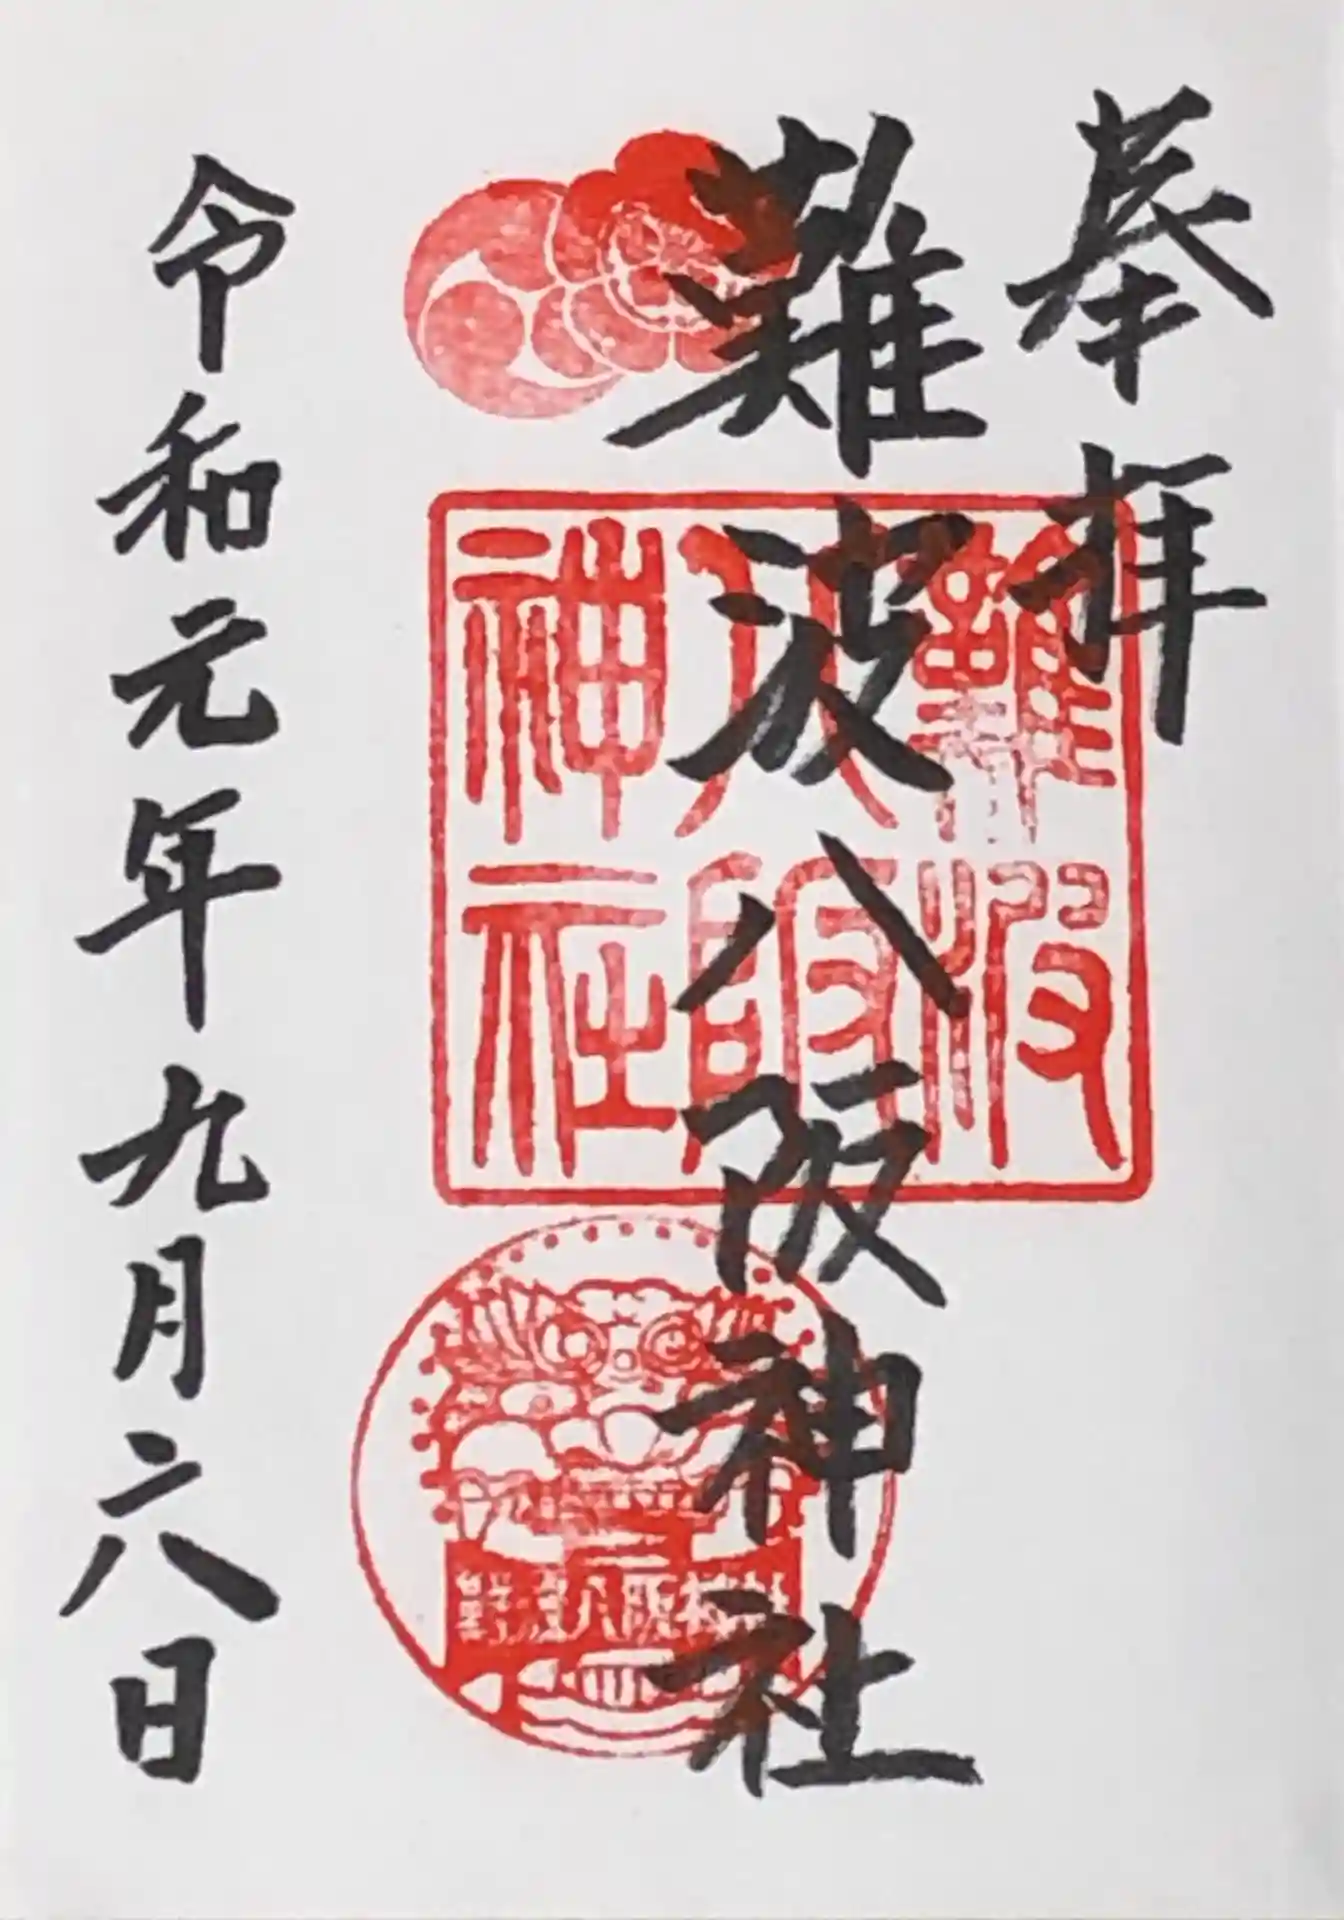 奉拝
難波八阪神社
難波
八阪
神社
難波八阪神社
令和元年九月六日